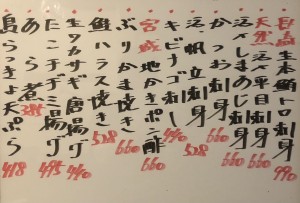 自島 生本鮪トロ 990
天然 活〆平目刺身 660
活〆しまあじ刺身 660
かつお刺身 660
活帆立刺身 528
キビナゴ刺し 440
宮城 地かきポン酢 660
ぶりかま焼き 660
鮭ハラス焼き 528
生タカサギ唐揚げ 440
たこチヂミ揚げ 495
あら煮
島らっきょ天ぷら 418